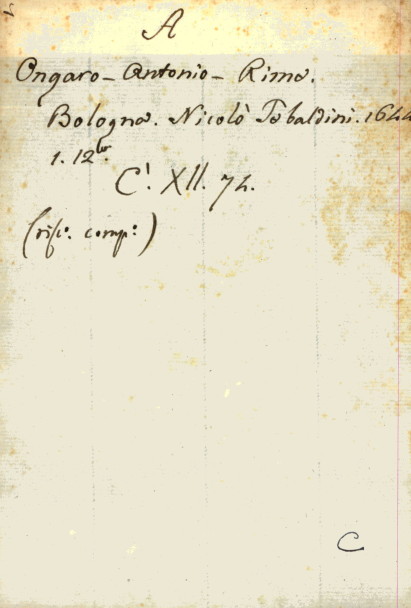 A
Ongaro - Antonio - Rime.
Bologna. Nicolò Tebaldini. 1644
1. 12°.
C¹. XII. 74.
(risc. comp:)
C